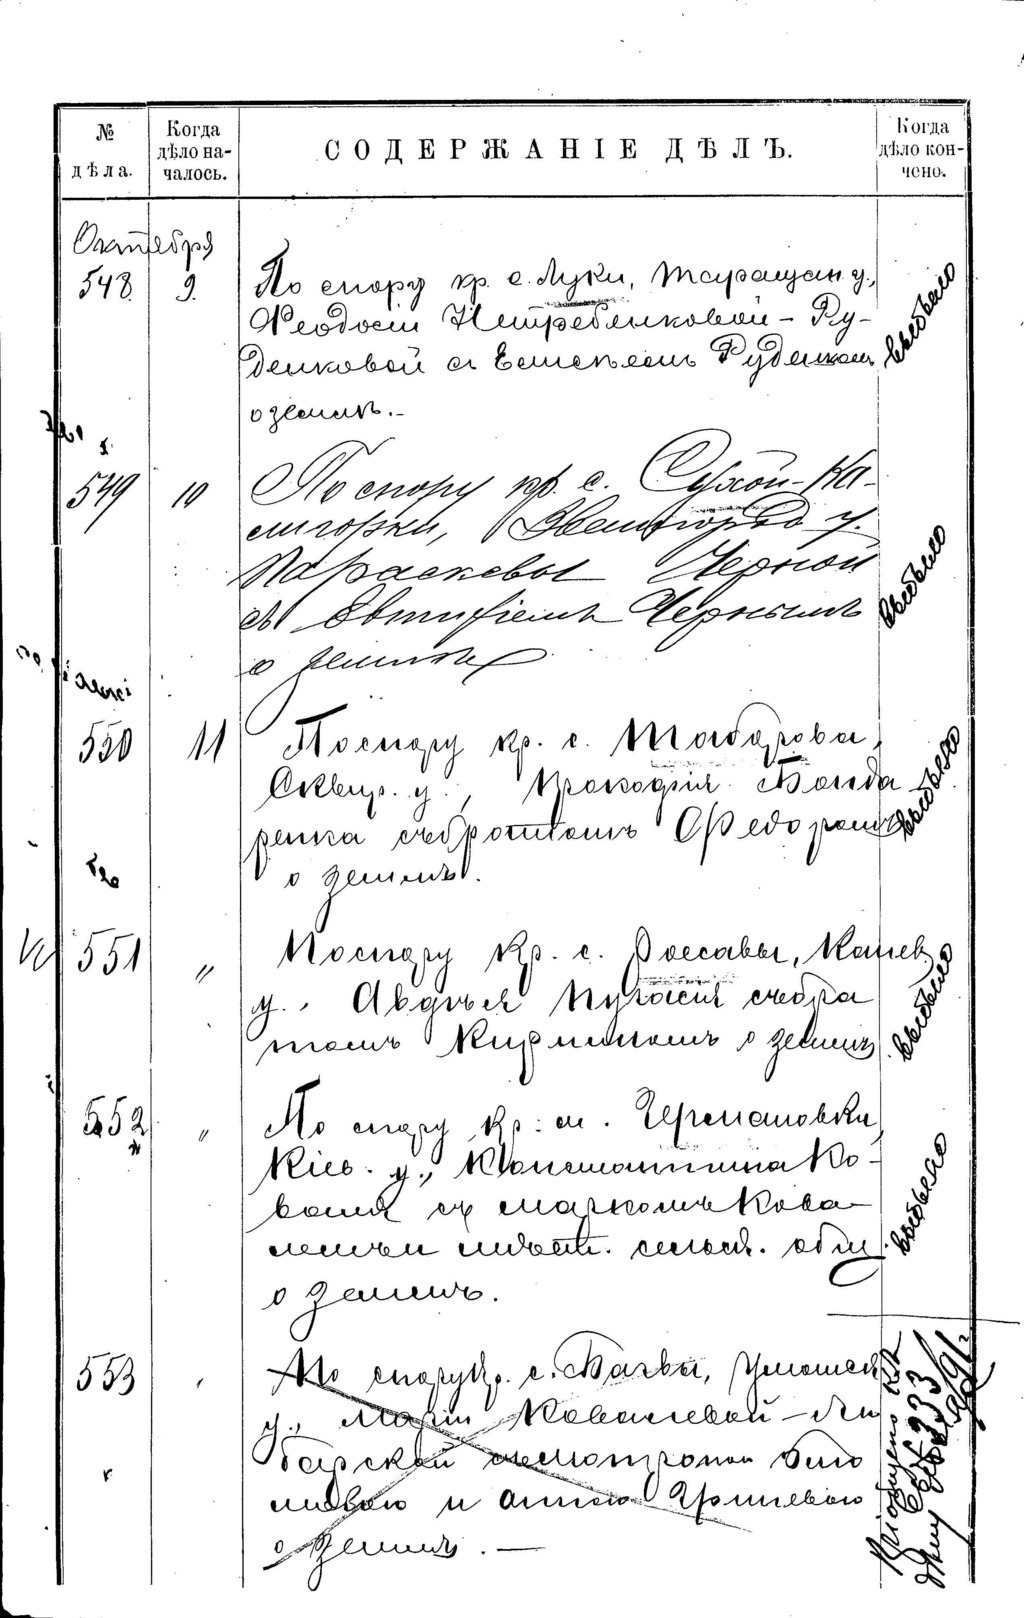 № дѣла.
Когда дѣло началось.
СОДЕРЖАНІЕ ДѢЛЪ.
Когда дѣло кончено.
Октября
548. 9. По спору кр. с. Луки, Таращан. у.,
Ѳеодосіи Нетребенковой - Ру-
денковой съ Евсевіемъ Руденком
о землѣ.-
выбыло
549 10 По спору кр. с. Сухой-Ка-
лигорки, Звенигород у.
Параскевы Черной
съ Евтифіемъ Чернымъ
о землѣ
выбыло
550 11 По спору кр. с. Тодорова,
Сквир. у., Прокофія Бонда
ренка съ братомъ Ѳедоромъ
о землѣ.
выбыло
551 " По спору кр. с. Россавы, Канев.
у., Авдѣя Пугасія съ бра
томъ Кириломъ о землѣ
выбыло
552 " По спору кр. м. Германовки,
Кіев. у., Константина Ко-
валя съ Маркомъ Кова-
лемъ и мѣст. сельск. общ.
о землѣ.
выбыло
553 По спору кр. с. Багвы, Уманск
у., Маріи Ковалевой - Ли
барской
и Анною Гришевою
о землѣ. —
Пріобщено къ
дѣлу 333